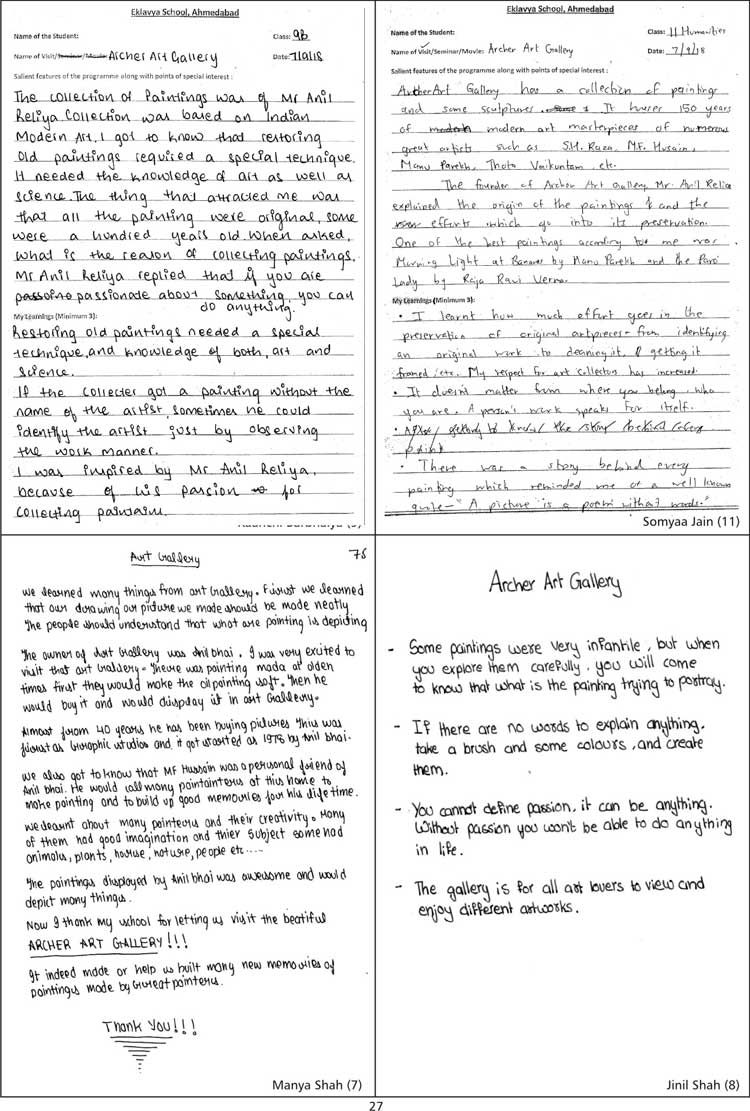 Eklavya School, Ahmedabad
Name of the Student: Class: 9B
Name of Visit/Seminar/Movie: Archer Art Gallery Date: 7/9/18
Salient features of the programme along with points of special interest :
The collection of Paintings was of Mr Anil
Reliya. Collection was based on Indian
Modern Art. I got to know that restoring
Old paintings required a special technique.
It needed the knowledge of art as well as
science. The thing that attracted me was
that all the painting were original, some
were a hundred years old. When asked,
What is the reason of collecting paintings.
Mr Anil Reliya replied that if you are
passionate about something, you can
do anything.
My Learnings (Minimum 3):
Restoring old paintings needed a special
technique, and knowledge of both, art and
science.
If the collecter got a painting without the
name of the artist, sometimes he could
identify the artist just by observing
the work manner.
I was inspired by Mr Anil Reliya,
because of his passion for
collecting
Eklavya School, Ahmedabad
Name of the Student: Class: 11 Humanities
Name of Visit/Seminar/Movie: Archer Art Gallery Date: 7/9/18
Salient features of the programme along with points of special interest :
Archer Art Gallery has a collection of paintings
and some sculptures. It houses 150 years
of modern art masterpieces of numerous
great artists such as S.H. Raza, M.F. Husain,
Manu Parekh, Thota Vaikuntam, etc.
The founder of Archer Art Gallery, Mr. Anil Relia
explained the origin of the paintings and the
efforts which go into its preservation.
One of the best paintings according to me was
Morning Light at Banares by Manu Parekh and the Parsi
Lady by Raja Ravi Verma.
My Learnings (Minimum 3):
• I learnt how much effort goes in the
preservation of original artpieces - from identifying
an original work to cleaning it, getting it
framed, etc. My respect for art collectors has increased.
• It doesn't matter from where you belong, who
you are. A person's work speaks for itself.
• After getting to know the story behind every
• There was a story behind every
painting which reminded me of a well known
quote - "A picture is a poem without words."
Somyaa Jain (11)
Art Gallery 78
We learned many things from art Gallery. First we learned
that our drawing or picture we made should be made neatly
The people should understand that what are painting is depicting
The owner of Art Gallery was Anil bhai. I was very exited to
visit that art Gallery. There was painting made at olden
times first they would make the oil painting soft. Then he
would buy it and would display it in art Gallery.
Almost from 40 years he has been buying pictures This was
first as Graphic studios and it got started as 1978 by Anil bhai.
We also got to know that MF Hussain was a personal friend of
Anil bhai. He would call many paintainters at this home to
make painting and to build up good memories for his life time.
We learnt about many painters and their creativity. Many
of them had good imagination and thier subject some had
animals, plants, horse, nature, people etc.....
The paintings displayed by Anil bhai was awesome and would
depict many things.
Now I thank my school for letting us visit the beatiful
ARCHER ART GALLERY!!!
It indeed made or help us built many new memories of
paintings made by Great painters.
Thank You!!!
Manya Shah (7)
Archer Art Gallery
- Some paintings were very infantile, but when
you explore them carefully, you will come
to know that what is the painting trying to portray.
- If there are no words to explain anything,
take a brush and some colours, and create
them.
- You cannot define passion, it can be anything.
Without passion you won't be able to do anything
in life.
- The gallery is for all art lovers to view and
enjoy different artworks.
Jinil Shah (8)
27